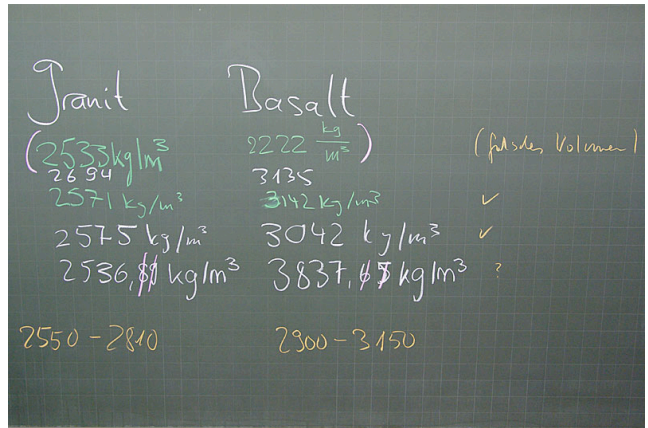 Granit Basalt
(2533 kg/m³ 2222 kg/m³) (falsches Volumen)
2694 3135
2571 kg/m³ 3142 kg/m³ ✓
2575 kg/m³ 3042 kg/m³ ✓
2536, kg/m³ 3837, kg/m³ ?
2550 - 2810 2900 - 3150